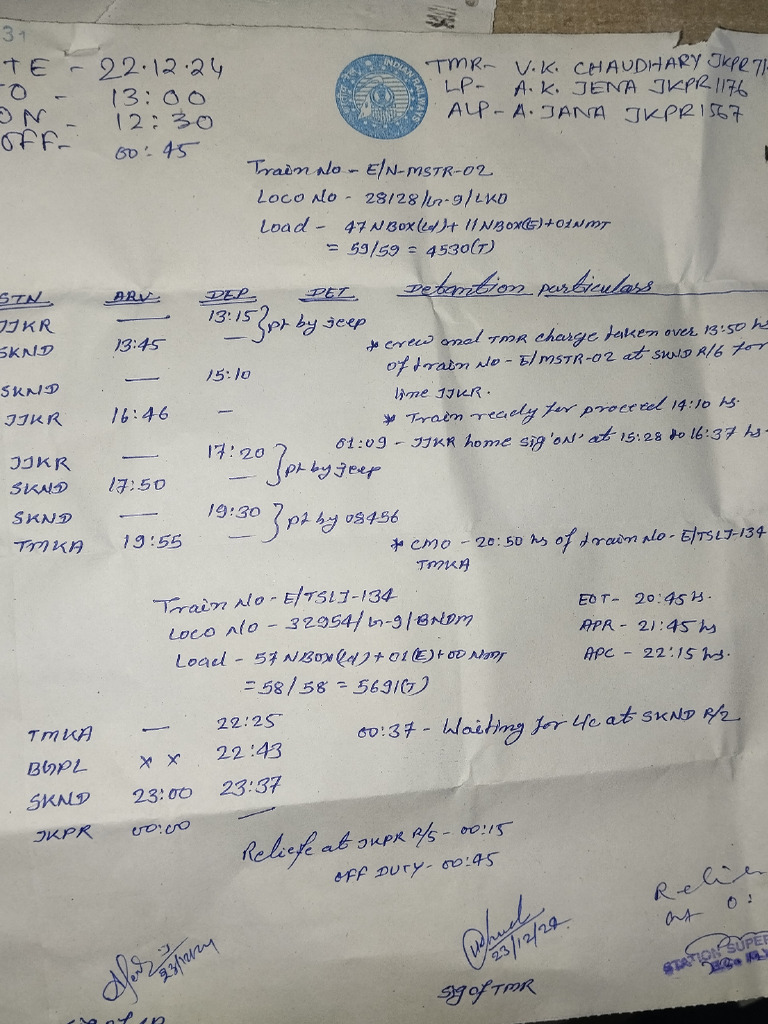 31
TE - 22.12.24
TO - 13:00
ON - 12:30
OFF- 00:45
INDIAN RAILWAYS
TMR- V.K. CHAUDHARY JKPR 71
LP- A.K. JENA JKPR 1176
ALP- A. JANA JKPR 1567
Train No - E/N-MSTR-02
Loco No - 28128/ /LKD
Load - 47 NBOX(Ld)+ 11 NBOX(E)+01NMT
= 59/59 = 4530(T)
STN ARV DEP DET Detention particulars
JJKR — 13:15 } pt by jeep
SKND 13:45 —
* crew and TMR charge taken over 13:50 hs
of train No - E/MSTR-02 at SKND R/6 for
line JJKR.
SKND — 15:10
JJKR 16:46 -
* Train ready for proceed 14:10 hs.
01:09 - JJKR home sig 'ON' at 15:28 to 16:37 hs-
JJKR — 17:20 } pt by jeep
SKND 17:50 —
SKND — 19:30 } pt by 08456
TMKA 19:55 —
* CMO - 20:50 hs of train No - E/TSLJ-134
TMKA
Train No - E/TSLJ-134
Loco No - 32954/ /BNDM
Load - 57 NBOX(Ld) + 01(E)+00 NMT
= 58/58 = 5691(T)
EOT- 20:45 hs.
APR - 21:45 hs
APC - 22:15 hs.
TMKA — 22:25
BGPL x x 22:43
SKND 23:00 23:37
JKPR 00:00 —
00:37 - Waiting for L/c at SKND R/2
Reliefe at JKPR R/5 - 00:15
OFF DUTY - 00:45
23/12/24
23/12/24
Sig of TMR
at 0:
STATION SUPER